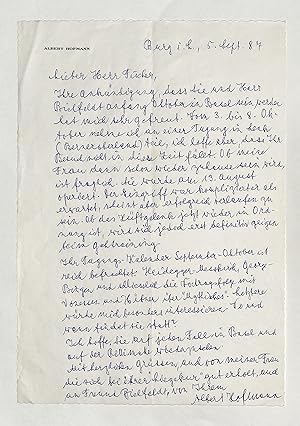 ALBERT HOFMANN
Burg i.L., 5. Sept. 84
Lieber Herr
Ihre Ankündigung, dass Sie und Herr
Bielfeldt anfang Oktober in Basel sein werden
hat mich sehr gefreut. Vom 3. bis 8. Ok-
tober nehme ich an einer Tagung in
teil, ich hoffe aber, dass ihr
Besuch nicht in diese Zeit fällt. Ob meine
Frau dann schon wieder zuhause sein wird,
ist fraglich. Sie wurde am 13. August
operiert. Der Eingriff war komplizierter als
erwartet, scheint aber erfolgreich verlaufen zu
sein. Ob das Hüftgelenk jetzt wieder in Ord-
nung ist, wird sich jedoch erst definitiv zeigen
beim
Ihr Tagungs-Kalender September-Oktober ist
reich
und die Vortragsfolge mit
und über "Mythisches". Letztere
würde mich besonders interessieren. Wo und
wann findet sie statt?
Ich hoffe, Sie auf jeden Fall in Basel und
auf der Rittimatte wiederzusehen
Mit herzlichen Grüssen, auch von meiner Frau
die sich bei ihrer gut erholt, und
an Freund Bielfeldt, von Ihrem
Albert Hofmann